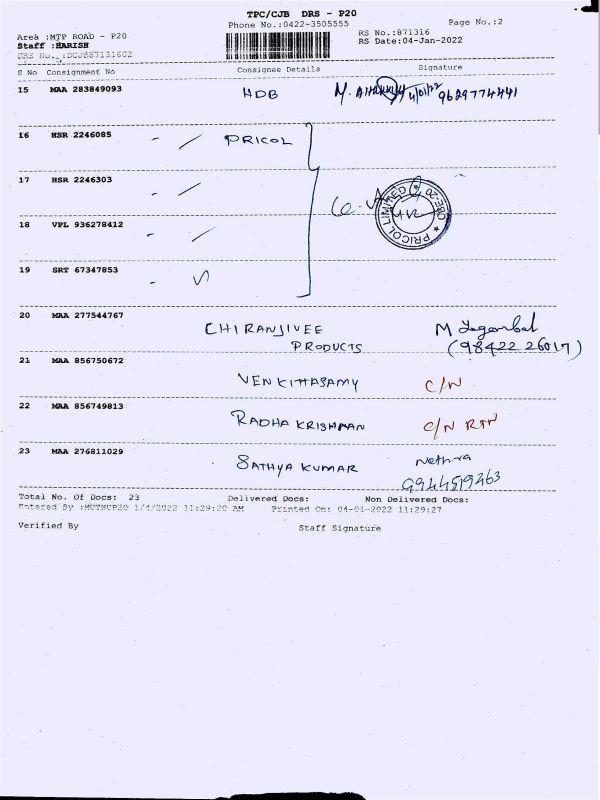 TPC/CJB DRS - P20
Phone No.:0422-3505555
Page No.:2
Area :MTP ROAD - P20
RS No.:871316
Staff :HARISH
RS Date:04-Jan-2022
DRS No. :DCJB87131602
S No Consignment No Consignee Details Signature
15 MAA 283849093 HDB M. 4/01/22 9629774441
16 HSR 2246085 - / PRICOL
17 HSR 2246303 - /
PRICOL LIMITED
18 VPL 936278412 - /
19 SRT 67347853 -
20 MAA 277544767 CHIRANJIVEE M
PRODUCTS (98422 26017)
21 MAA 856750672 VENKITHASAMY C/N
22 MAA 856749813 RADHA KRISHNAN C/N RTN
23 MAA 276811029 SATHYA KUMAR Nethra
9944519263
Total No. Of Docs: 23 Delivered Docs: Non Delivered Docs:
Entered By :MUTHUP20 1/4/2022 11:29:20 AM Printed On: 04-01-2022 11:29:27
Verified By Staff Signature